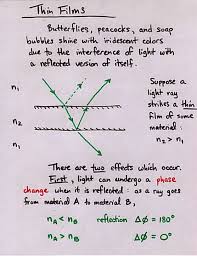 Thin Films
Butterflies, peacocks, and soap
bubbles shine with iridescent colors
due to the interference of light with
a reflected version of itself.
Suppose a
light ray
strikes a thin
film of some
material.
n₂ > n₁
n₁
n₂
n₁
There are two effects which occur.
First, light can undergo a phase
change when it is reflected: as a ray goes
from material A to material B,
n_A < n_B reflection Δφ = 180°
n_A > n_B Δφ = 0°